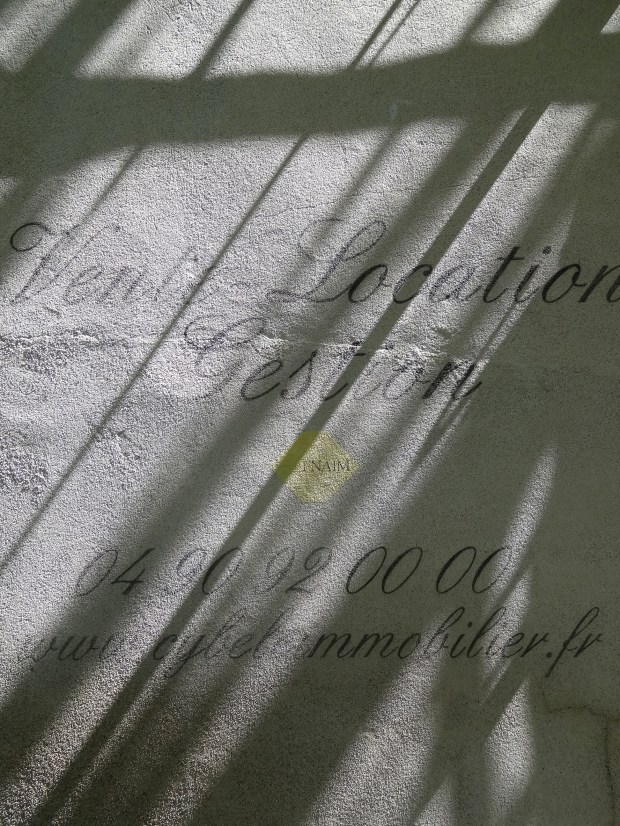 Vente Location
Gestion
FNAIM
04 90 92 00 00
www.cybeleimmobilier.fr